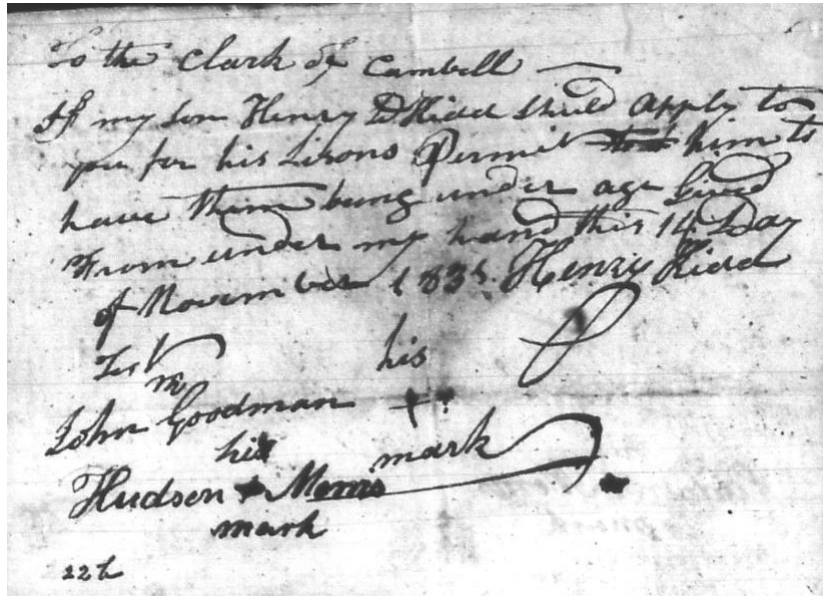 To the Clark of Cambell
If my son Henry D Kidd should apply to
you for his Lisons Permit him to
have them being under age Gived
From under my hand this 14 Day
of November 183 Henry Kidd
Test
his
John Goodman +
his mark
Hudson Morris
mark
22